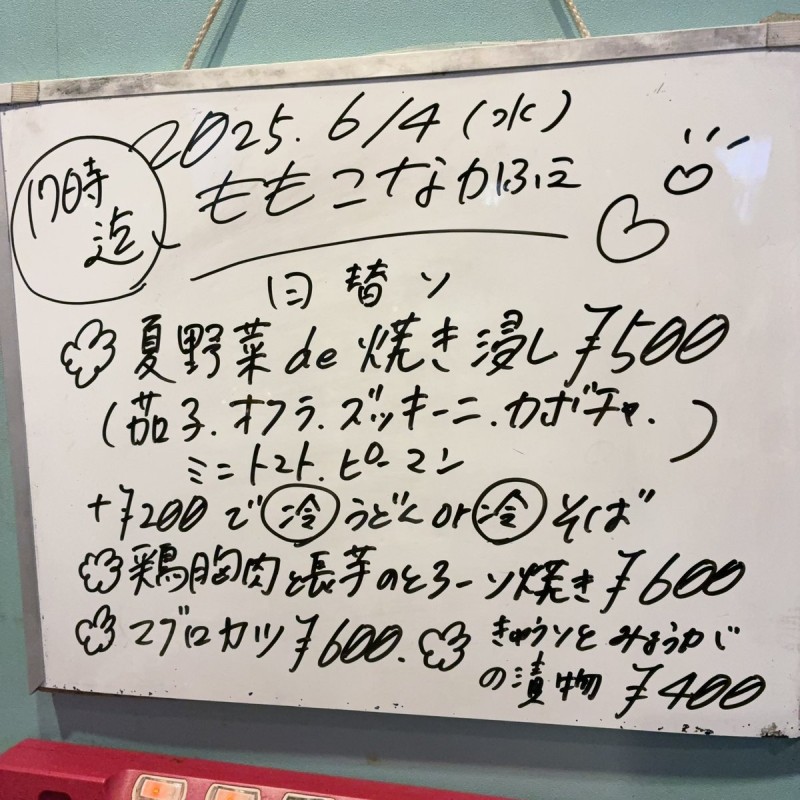 2025. 6/4 (水)
17時迄
ももこなかほに
日替り
夏野菜 de 焼き浸し ¥500
(茄子.オクラ.ズッキーニ.カボチャ.
ミニトマト.ピーマン)
+¥200で冷うどんor冷そば
鶏胸肉と長芋のとろーり焼き¥600
マグロカツ¥600.
きゅうりとみょうがじ
の漬物 ¥400